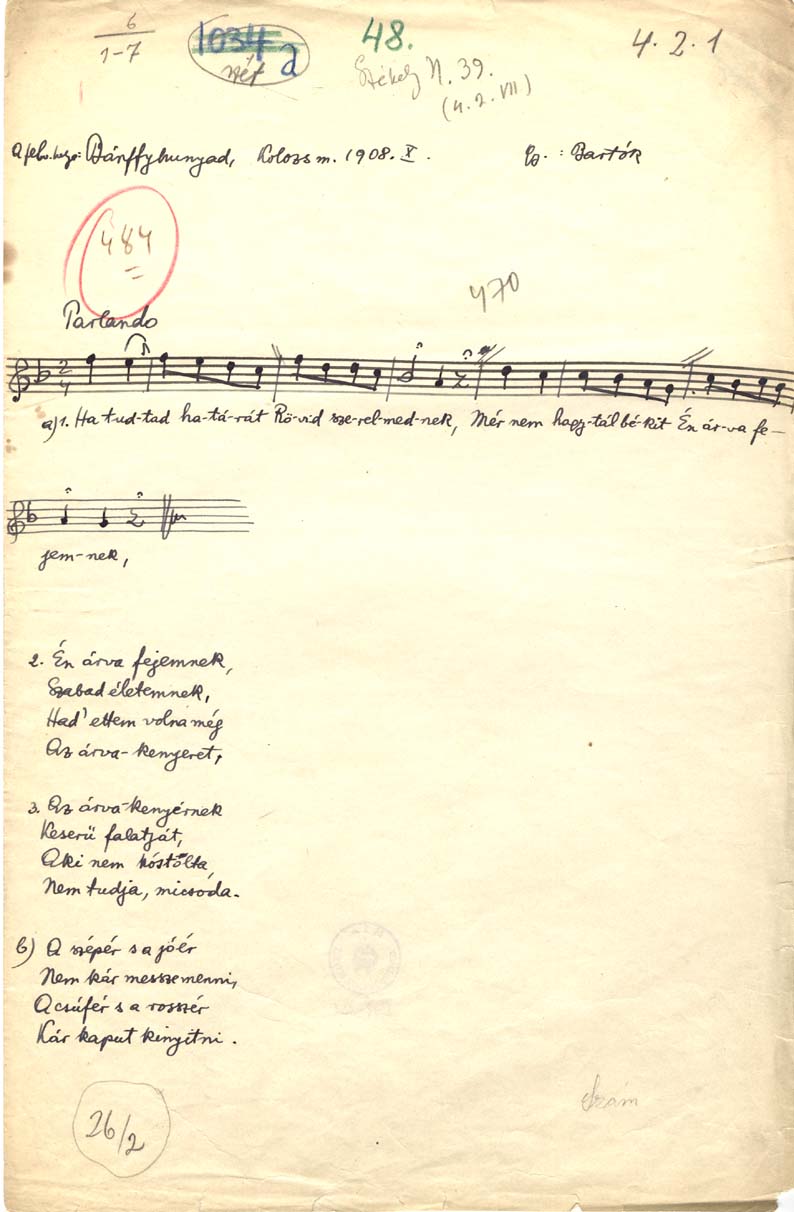 6
1-7
1034
a
48.
4.2.1
Székely N. 39.
(4.2.VII)
Bánffyhunyad, Kolozs m. 1908. X.
Gy.: Bartók
484
470
Parlando
2
4
a) 1. Ha tud-tad ha-tá-rát Rö-vid sze-rel-med-nek, Mér nem hagy-tál bé-kit Én ár-va fe-
jem-nek,
2. Én árva fejemnek,
Szabad életemnek,
Had' ettem volna még
Az árva-kenyeret,
3. Az árva-kenyérnek
Keserü falatját,
Aki nem kóstólta,
Nem tudja, micsóda.
b) A szépér s a jóér
Nem kár messze menni,
A csúfér s a rosszér
Kár kaput kinyitni.
26/2